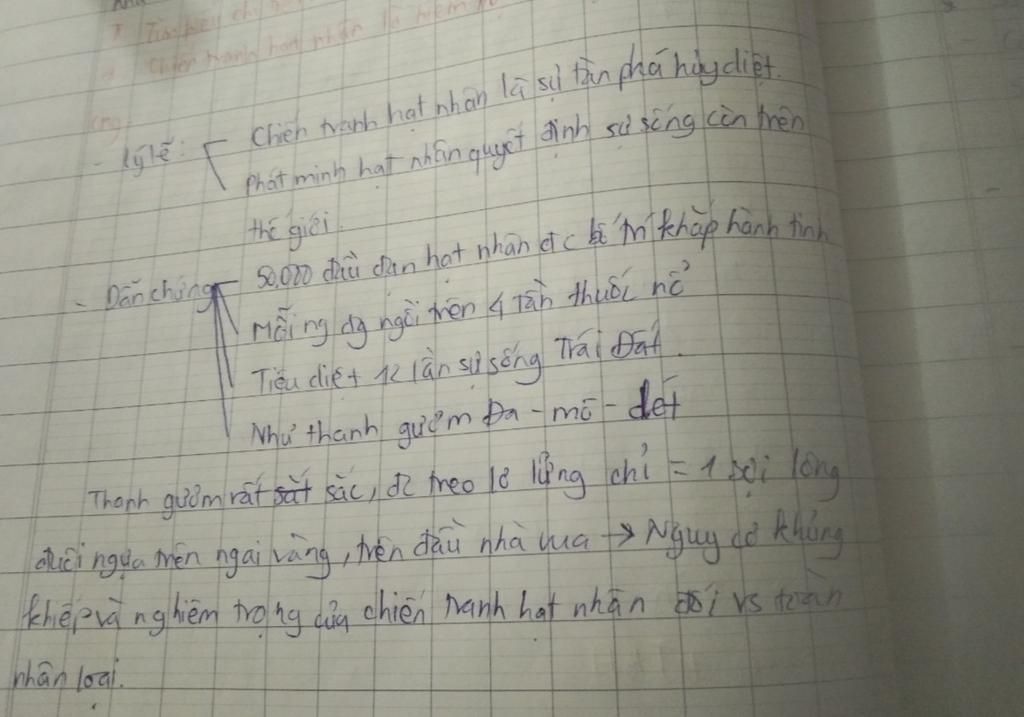 - Lý lẽ: Chiến tranh hạt nhân là sự tàn phá hủy diệt.
Phát minh hạt nhân quyết định sự sống còn trên
thế giới.
- Dẫn chứng 50.000 đầu đạn hạt nhân đc bố trí khắp hành tinh
Mỗi ng đg ngồi trên 4 tấn thuốc nổ
Tiêu diệt 12 lần sự sống Trái Đất.
Như thanh gươm Đa-mô-clét
Thanh gươm rất sắc, đc treo lơ lửng chỉ = 1 sợi lông
đuôi ngựa trên ngai vàng, trên đầu nhà vua → Nguy cơ khủng
khiếp và nghiêm trọng của chiến tranh hạt nhân đối vs toàn
nhân loại.